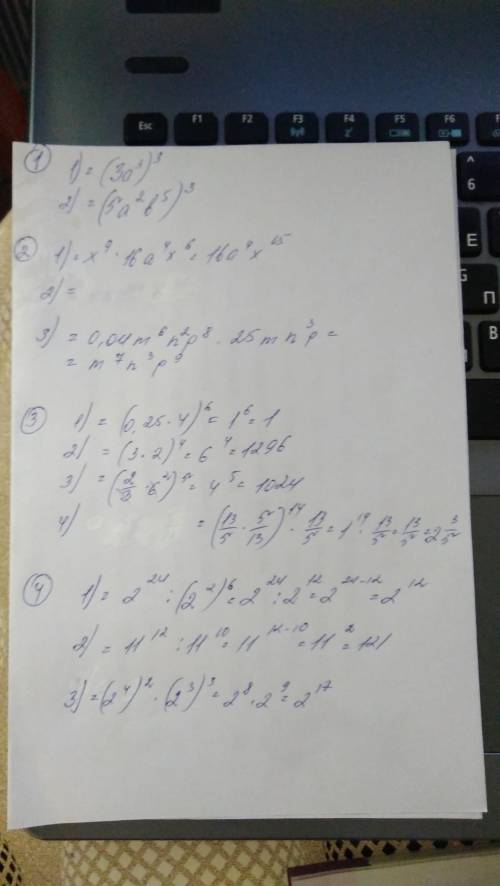 Esc F1 F2 F3 F4 F5 F6
^
6
Е
П
В
1 1) = (3a³)³
2) = (5a²b⁵)³
2 1) = x⁹ · 16a⁴x⁶ = 16a⁴x¹⁵
2) =
3) = 0,04m⁶n²p⁸ · 25mn³p =
= m⁷n³p⁹
3 1) = (0,25·4)⁶ = 1⁶ = 1
2) = (3·2)⁴ = 6⁴ = 1296
3) = = 4⁵ = 1024
4) = (13/5 · 5/13)¹⁴ · 13/5 = 1¹⁴ · 13/5 = 13/5 = 2 3/5
4 1) = 2²⁴ : (2²)⁶ = 2²⁴ : 2¹² = 2²⁴⁻¹² = 2¹²
2) = 11¹² : 11¹⁰ = 11¹²⁻¹⁰ = 11² = 121
3) = (2⁴)² · (2³)³ = 2⁸ · 2⁹ = 2¹⁷